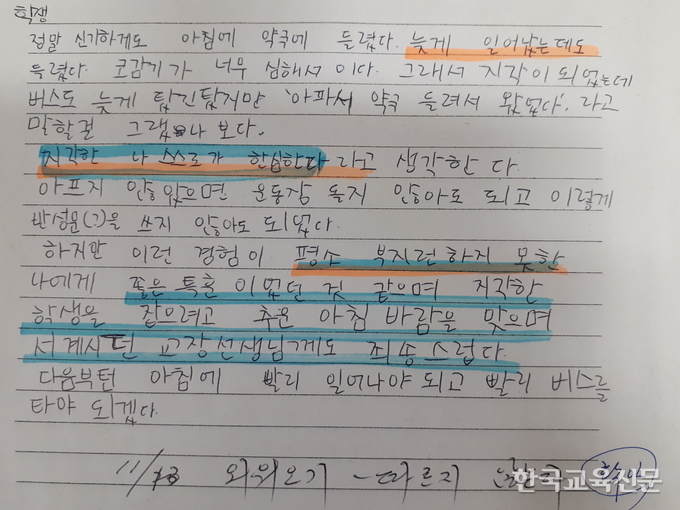 학생
정말 신기하게도 아침에 약국에 들렸다. 늦게 일어났는데도
들렸다. 코감기가 너무 심해서 이다. 그래서 지각이 되었는데
버스도 늦게 탔긴탔지만 '아파서 약국 들려서 왔었다'. 라고
말할걸 그랬나 보다.
지각한 나 스스로가 한심하다 라고 생각한 다.
아프지 않았으면 운동장 돌지 않아도 되고 이렇게
반성문(?)을 쓰지 않아도 되었다.
하지만 이런 경험이 평소 부지런하지 못한
나에게 좋은 특훈 이었던 것 같으며 지각한
학생을 잡으려고 추운 아침 바람을 맞으며
서 계시던 교장선생님께도 죄송스럽다.
다음부턴 아침에 빨리 일어나야 되고 빨리 버스를
타야 되겠다.
11/13 외위오기 -따르지
한국교육신문